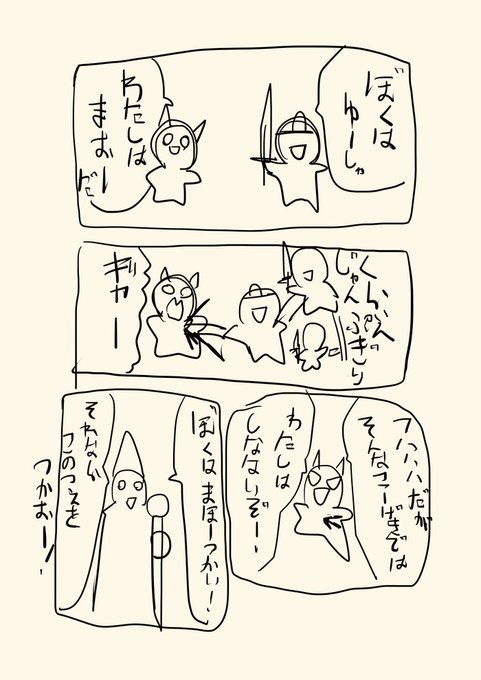 ぼくは
ゆーしゃ
わたしは
まおー
だ
じゃんぷきり
ギャー
フハハハだが
わたしは
しなないぞー!
ぼくはまほーつかい!
それなら
このつえを
つかおー!